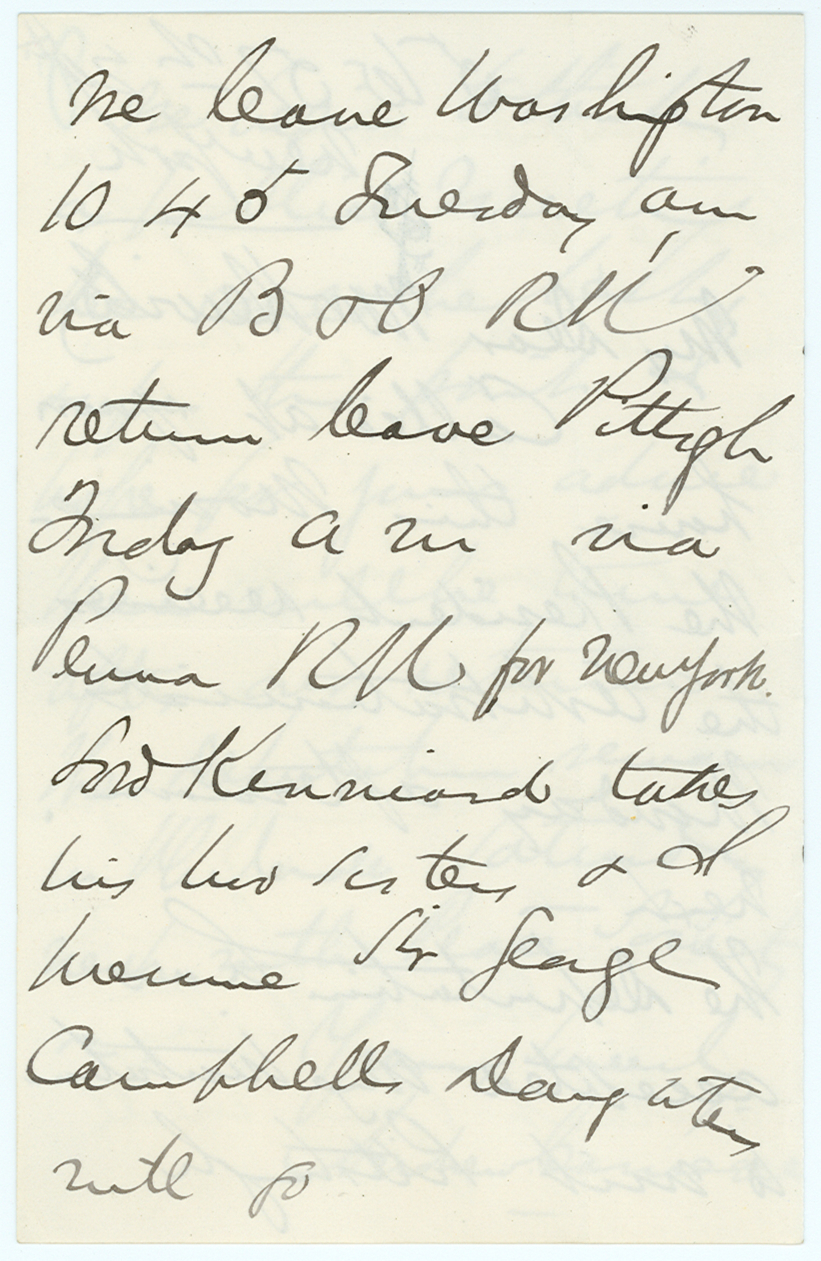 We leave Washington
10 45 Tuesday, am
via B & O RR
return leave Pittsgh
Friday a m via
Penna RR for New York.
Lord Kinnaird takes
his two sisters & I
Sir George
Campbells Daughters
will go